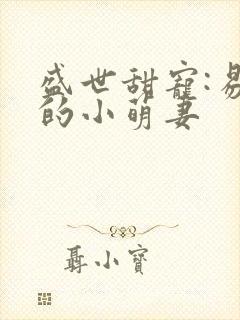 盛世甜寵:易
的小萌妻
聶小寶